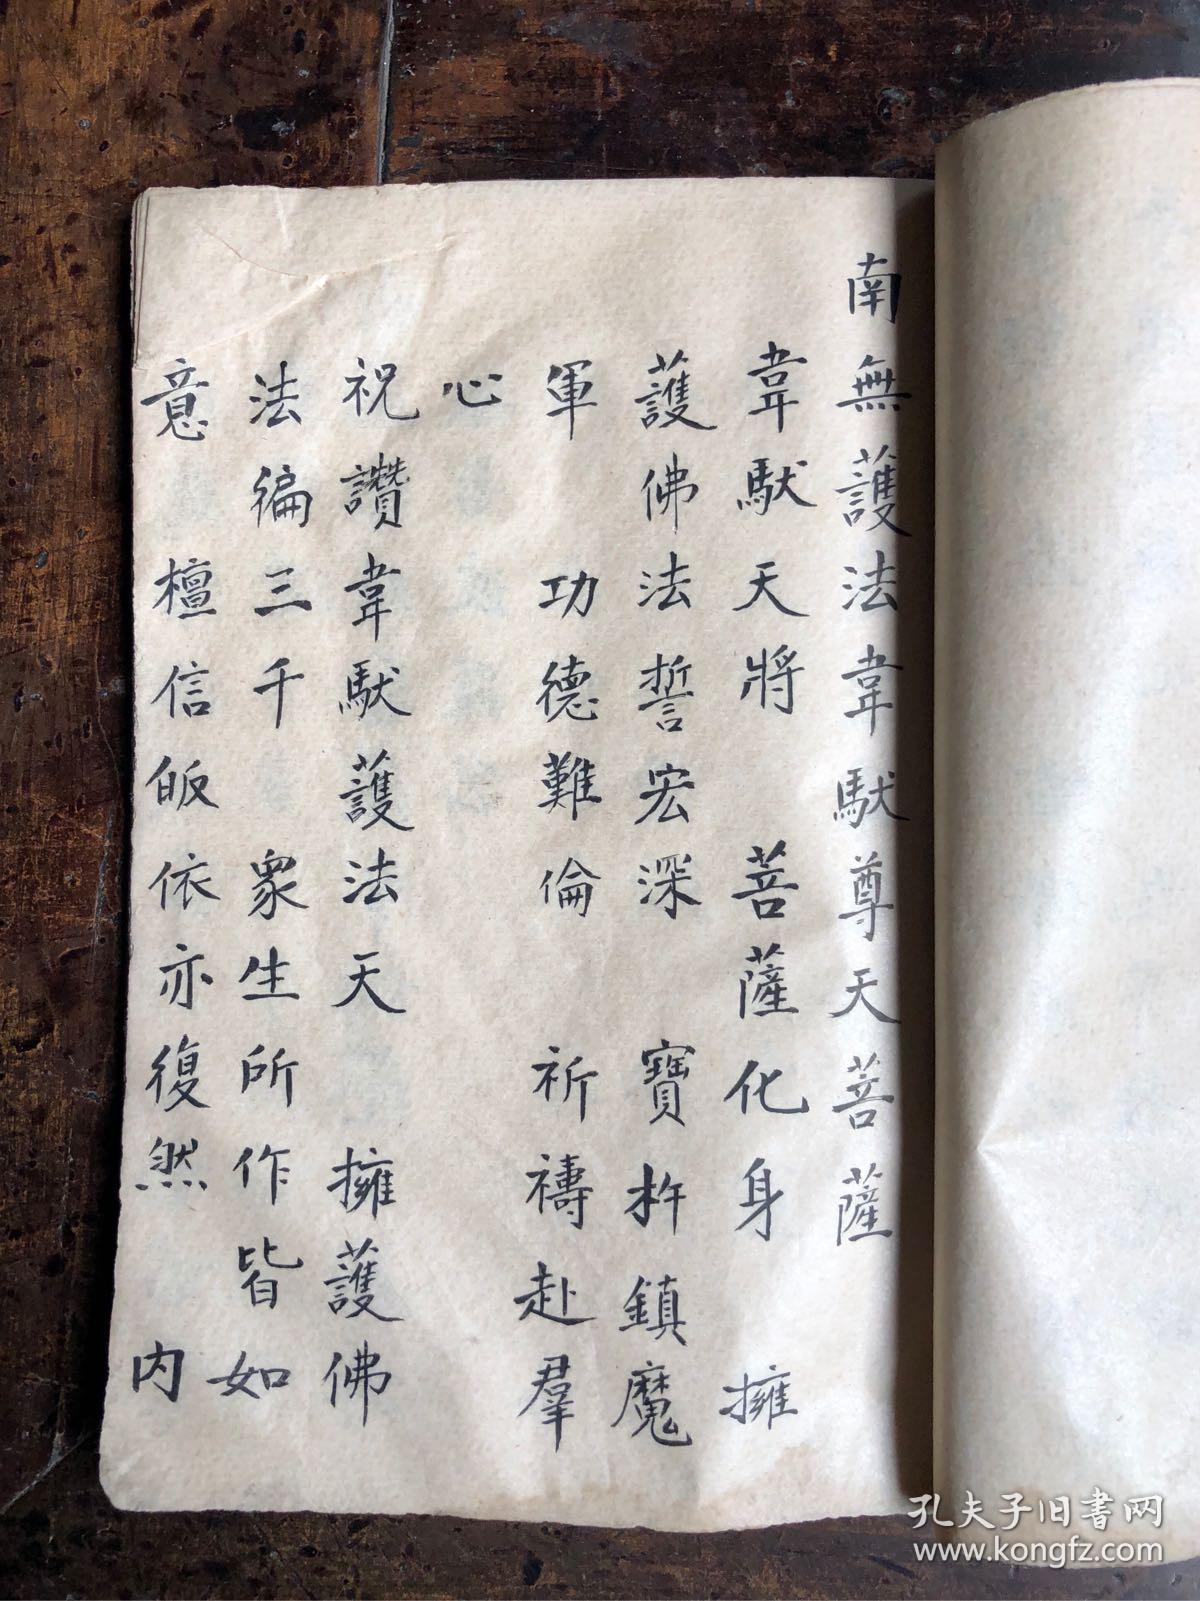 南無護法韋馱尊天菩薩
韋馱天將 菩薩化身 擁
護佛法誓宏深 寶杵鎮魔
軍 功德難倫 祈禱赴羣
心
祝讚韋馱護法天 擁護佛
法徧三千 衆生所作皆如
意 檀信皈依亦復然 内
孔夫子旧书网
www.kongfz.com